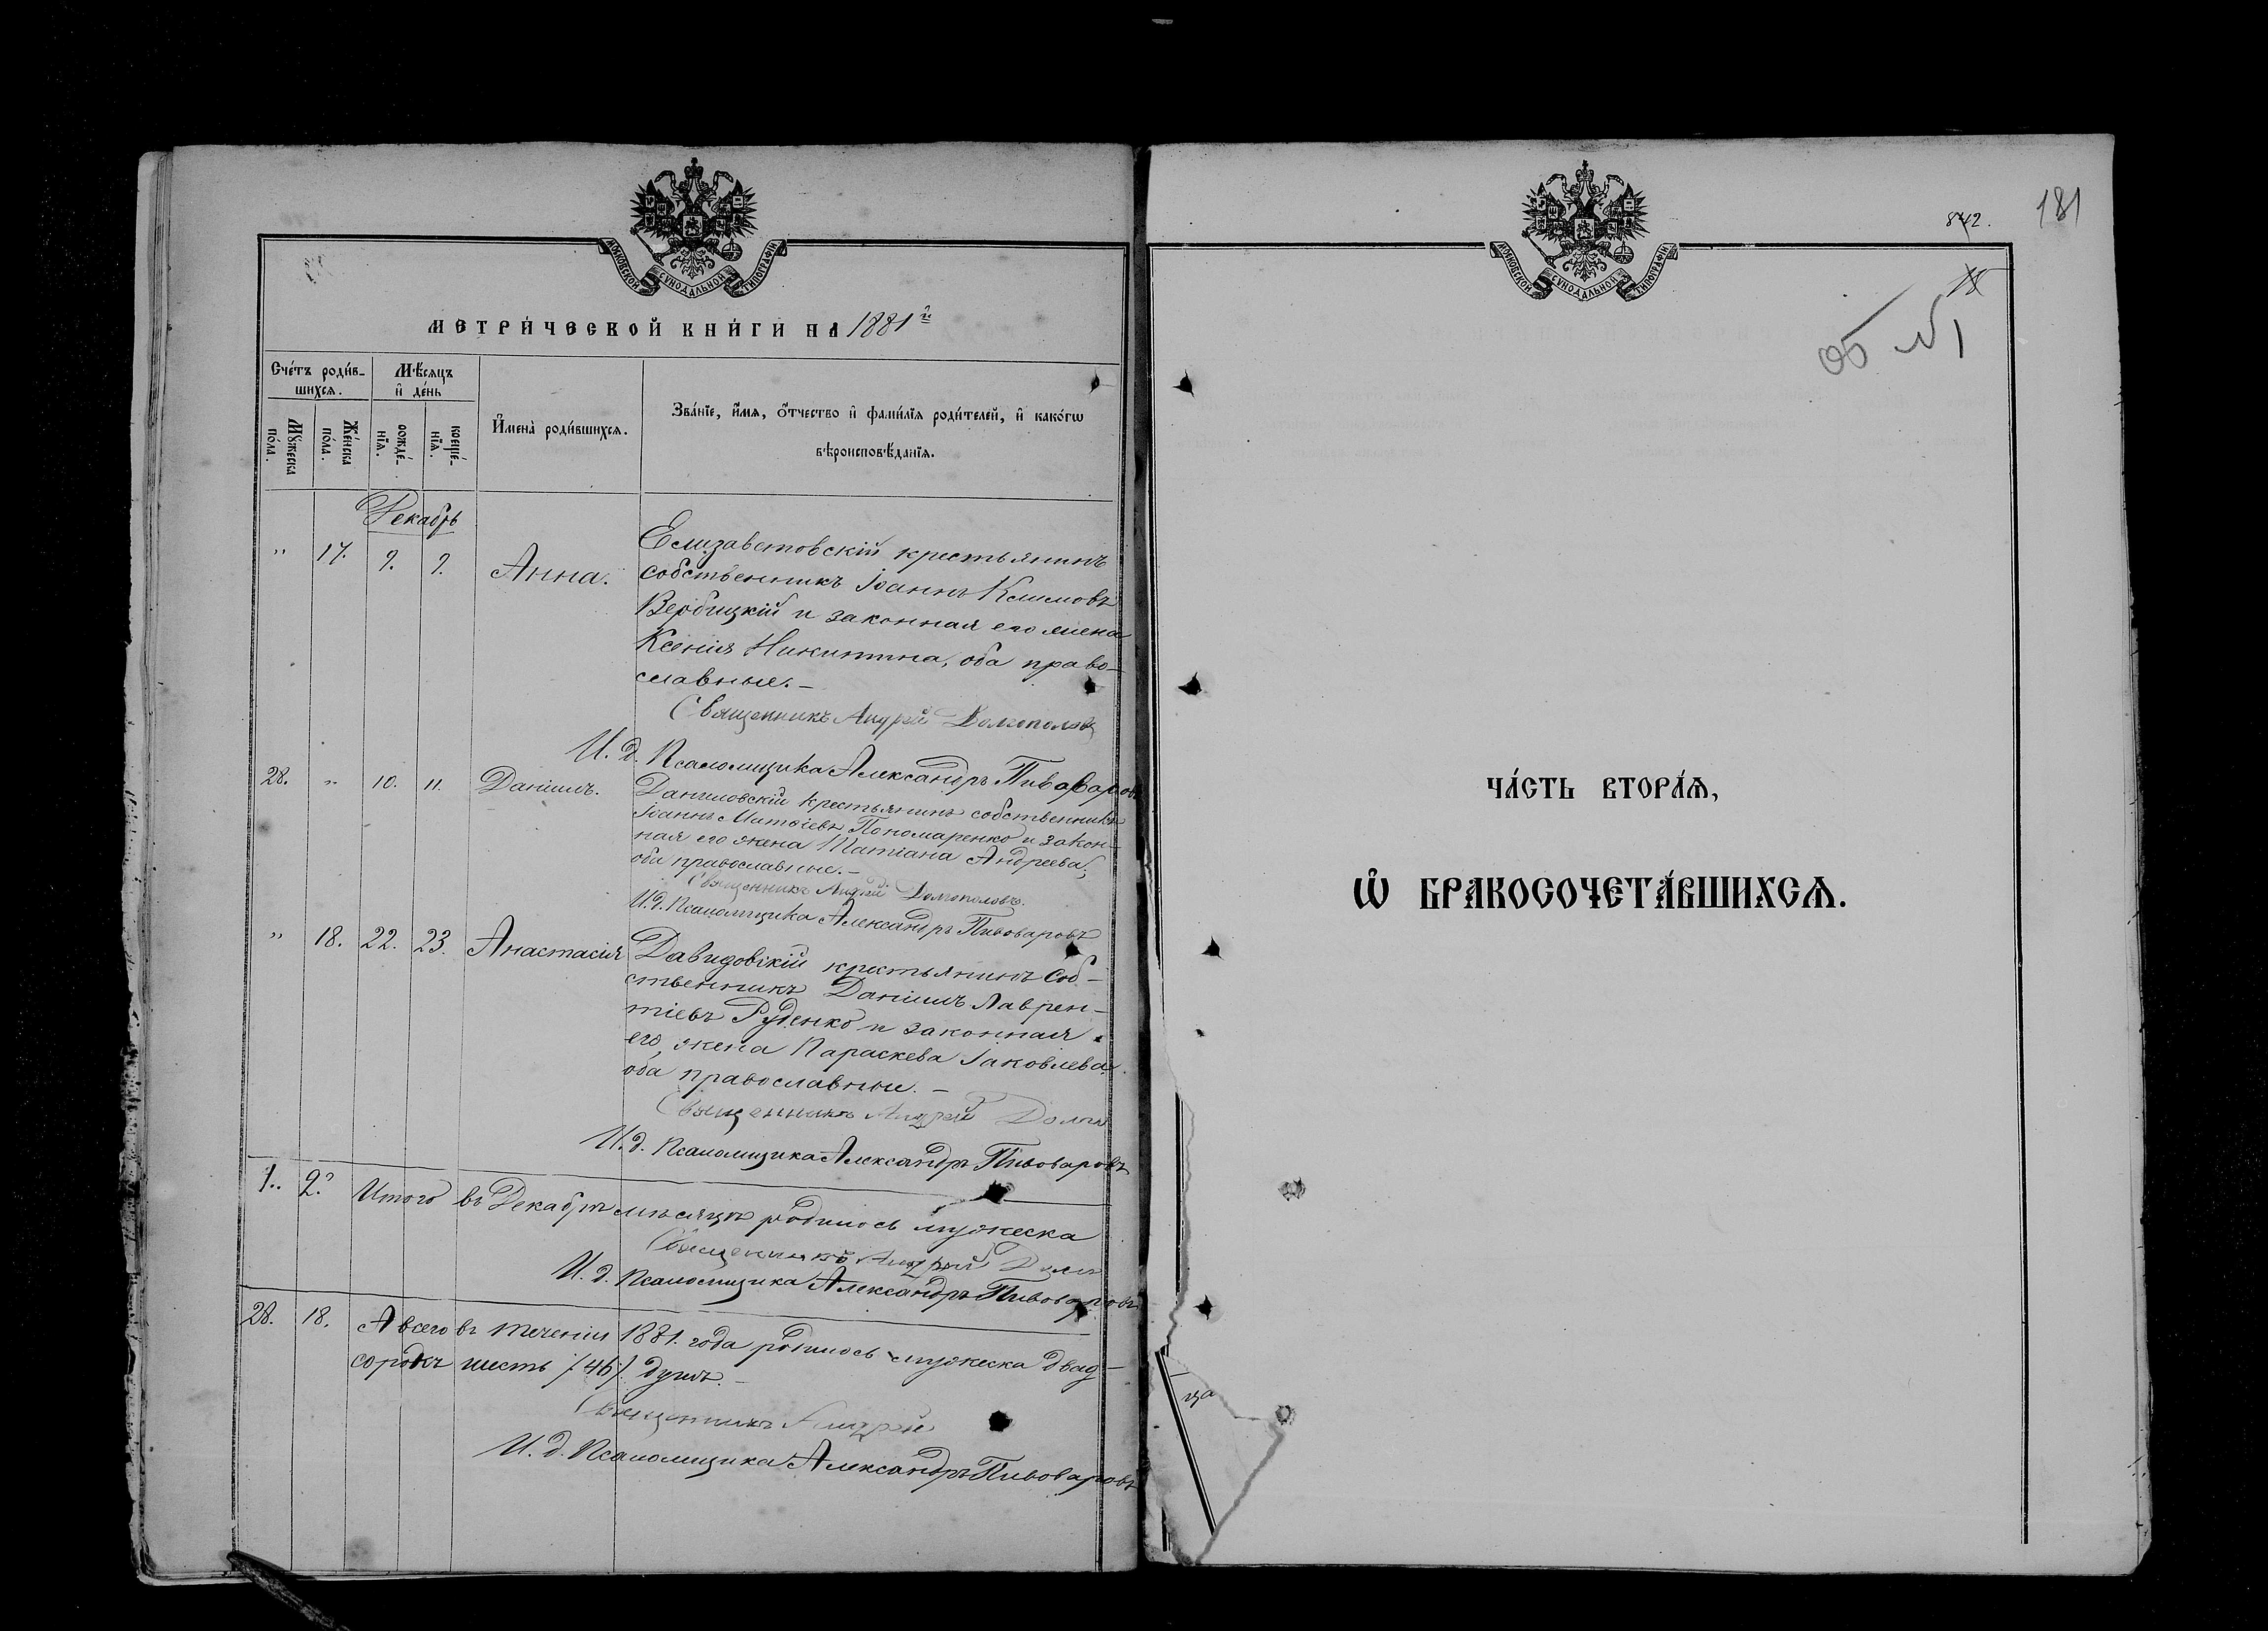 МОСКОВСКОЙ СѴНОДАЛЬНОЙ ТИПОГРАФІИ
МЕТРИ́ЧЕСКОЙ КНИ́ГИ НА 1881й
Сче́тъ роди́в-
шихся.
Мѣ́сяцъ
и҆ де́нь
Мꙋ́жеска
по́ла.
Же́нска
по́ла.
рожде́-
нїѧ.
креще́-
нїѧ.
И҆мена̀ роди́вшихсѧ.
Зва́нїе, и҆́мѧ, ѻ҆́тчество и҆ фами́лїѧ роди́телей, и҆ како́гѡ
вѣроисповѣ́данїѧ.
Декабрь
" 17. 9. 9. Анна. Елизаветовскій крестьянинъ
собственникъ Іоаннъ Климовъ
Вербицкій и законная его жена
Ксенія Никитина, оба право-
славные.-
Священникъ Андрей Долгополовъ
И. д. Псаломщика Александръ Пивоваровъ
28. " 10. 11. Даніилъ. Даниловскій крестьянинъ собственникъ
Іоаннъ Матѳіевъ Пономаренко и закон-
ная его жена Татіана Андреева,
оба православные.-
Священникъ Андрей Долгополовъ.
И.д. Псаломщика Александръ Пивоваровъ
" 18. 22. 23. Анастасія Давидовскій крестьянинъ соб-
ственникъ Даніилъ Лаврен-
тіевъ Руденко и законная
его жена Параскева Іаковлева,
оба православные.-
Священникъ Андрей Долго
И.д. Псаломщика Александръ Пивоваровъ
1.. 2. Итого въ Декабрѣ мѣсяцѣ родилось мужеска
Священникъ Андрей Долг
И. д. Псаломщика Александръ Пивоваровъ
28. 18. А всего въ теченіи 1881. года родилось мужеска двад-
сорокъ шесть /46/ душъ.-
Священникъ Андрей
И. д. Псаломщика Александръ Пивоваровъ
МОСКОВСКОЙ СѴНОДАЛЬНОЙ ТИПОГРАФІИ
842.
181
18
об №1
ЧА́СТЬ ВТОРА́Ѧ,
Ѡ҆ БРАКОСОЧЕТА́ВШИХСѦ.
ца